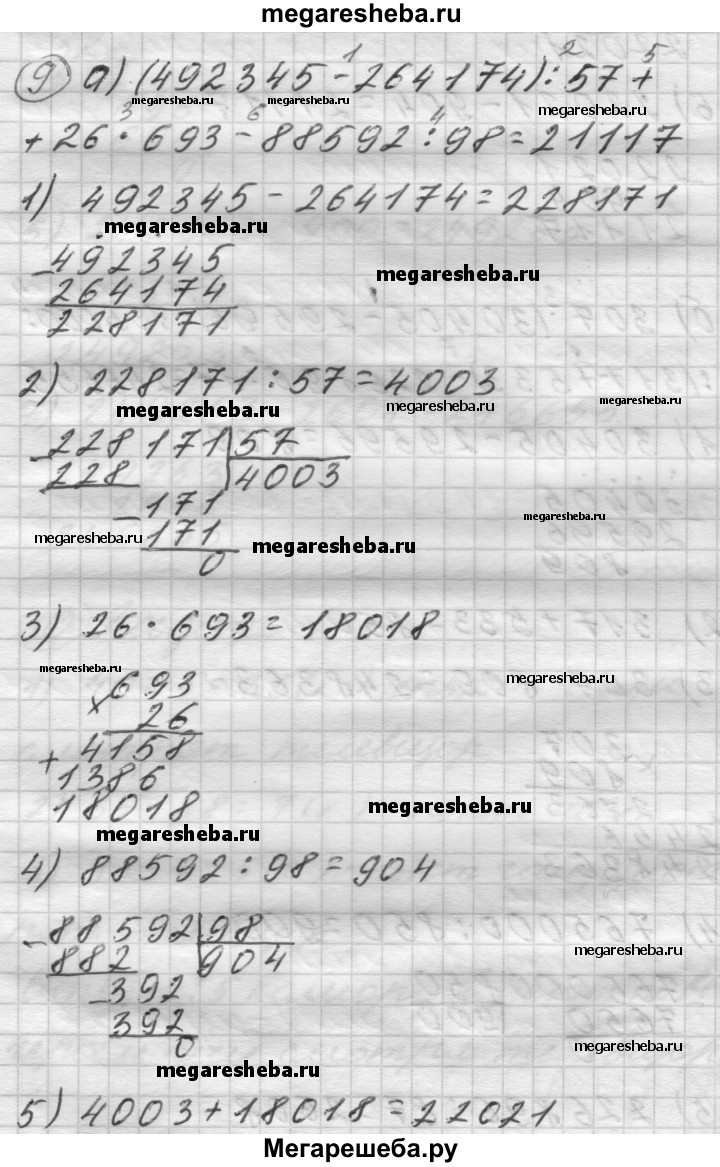 megaresheba.ru
9 а) (492345 - 264174) : 57 +
1 2 5
megaresheba.ru megaresheba.ru megaresheba.ru
+ 26 · 693 - 88592 : 98 = 21117
3 6 4
1) 492345 - 264174 = 228171
megaresheba.ru
- 492345
megaresheba.ru
264174
228171
2) 228171 : 57 = 4003
megaresheba.ru megaresheba.ru megaresheba.ru
- 228171 | 57
228 | 4003
- 171
megaresheba.ru
megaresheba.ru 171 megaresheba.ru
0
3) 26 · 693 = 18018
megaresheba.ru megaresheba.ru
× 693
26
+ 4158
1386
18018
megaresheba.ru
megaresheba.ru
4) 88592 : 98 = 904
- 88592 | 98
882 | 904
megaresheba.ru
- 392
392
0
megaresheba.ru
megaresheba.ru
5) 4003 + 18018 = 22021
Мегарешеба.ру